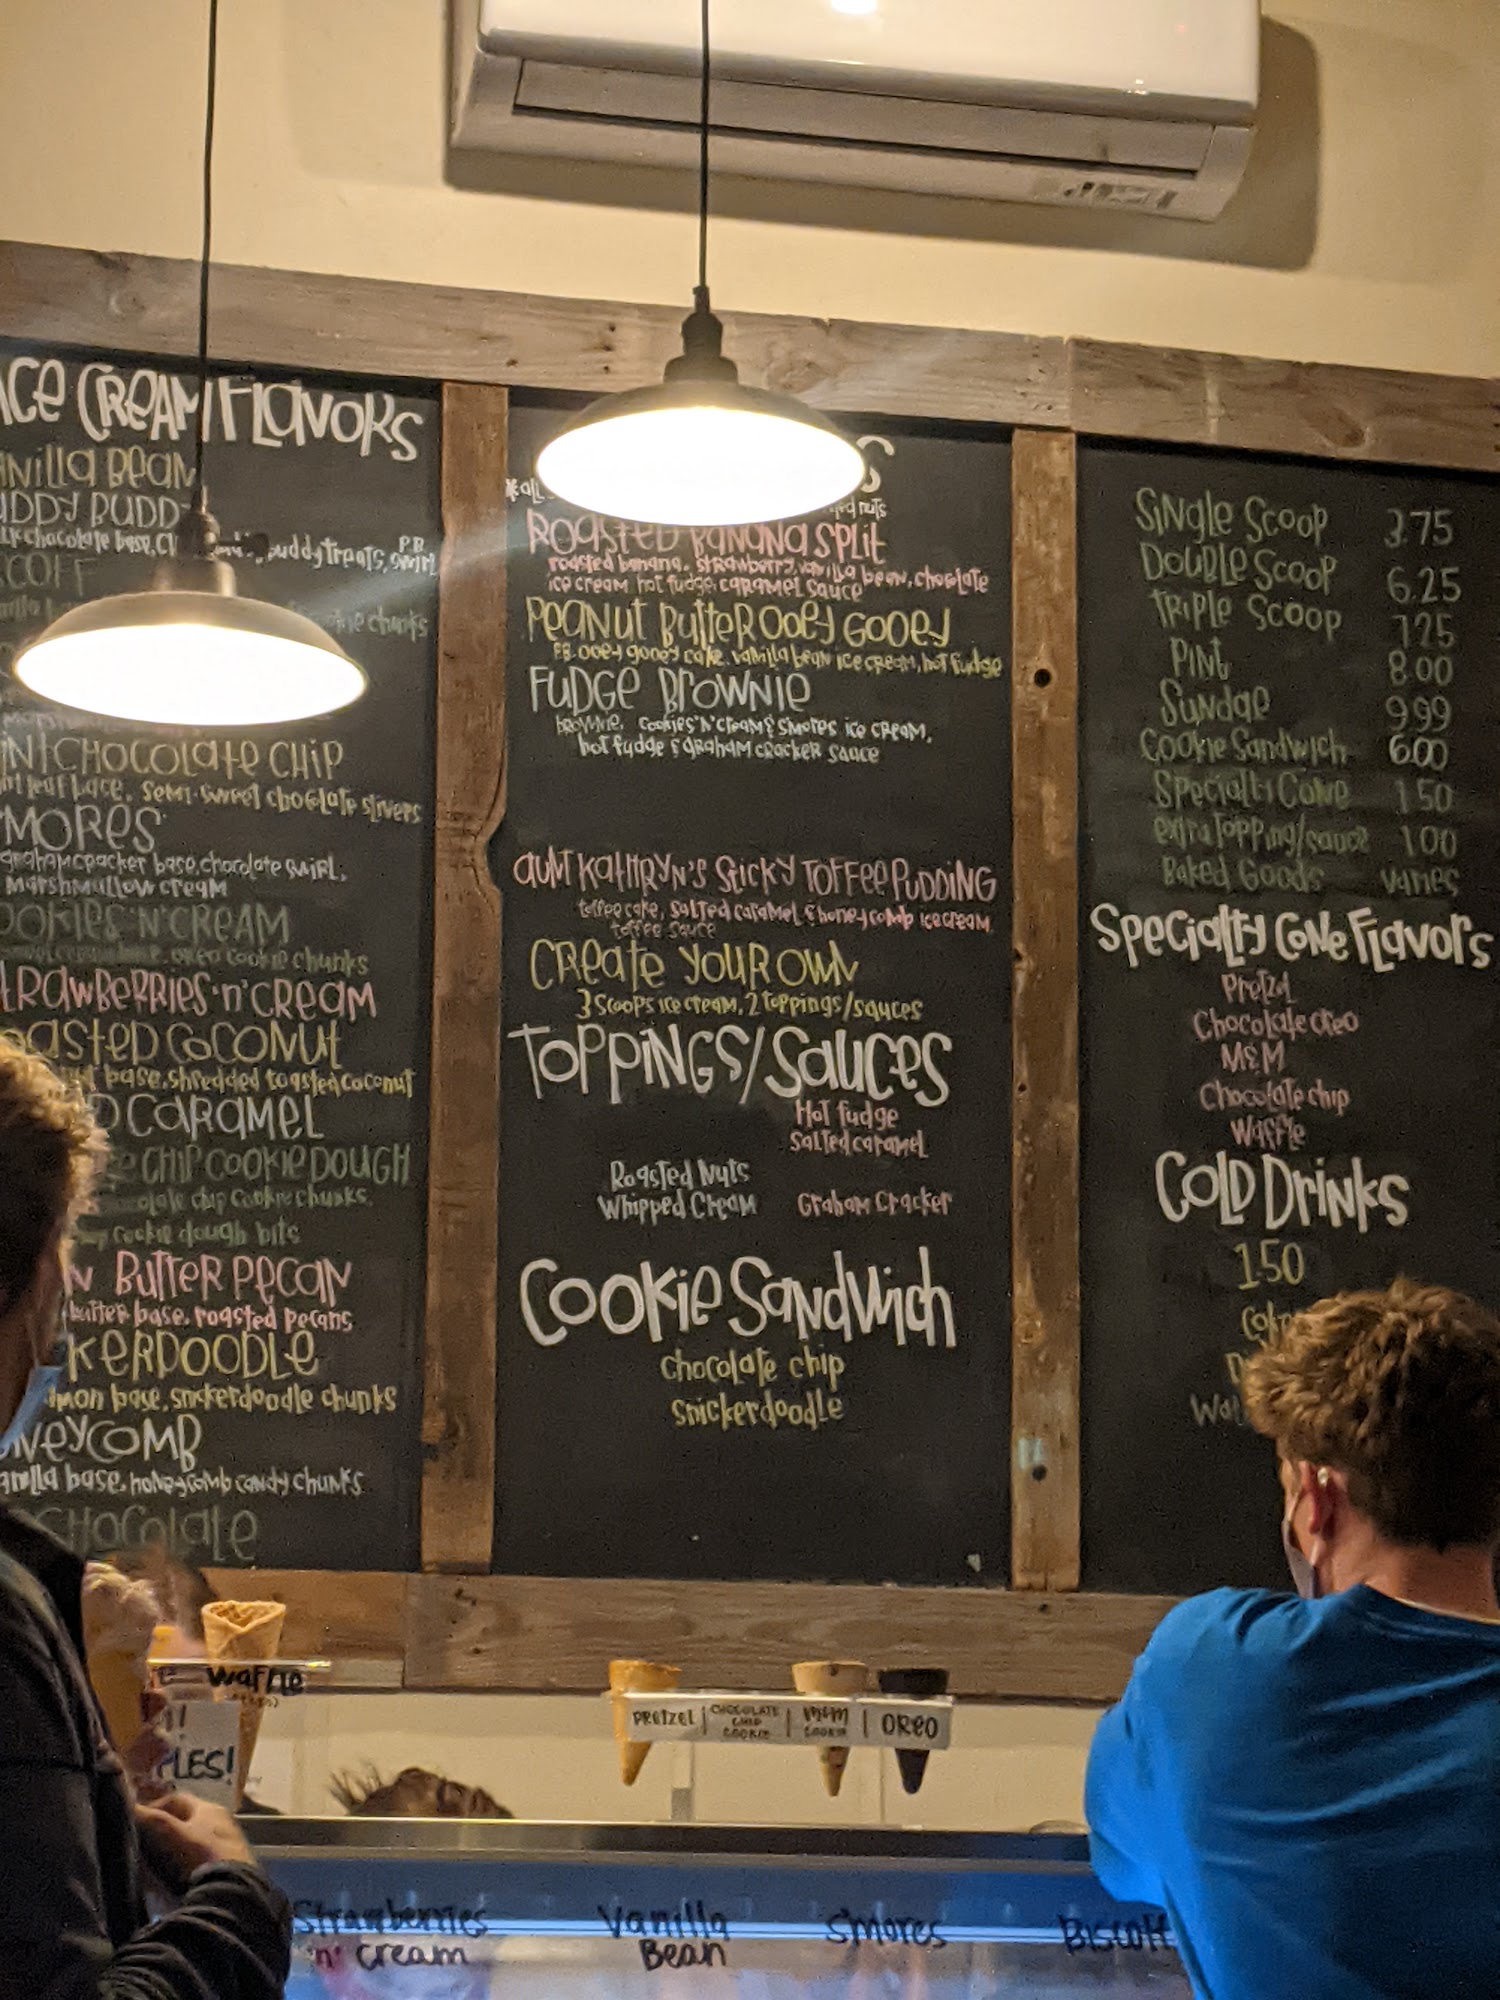 ICE CREAM FLAVORS
ANILLA BEAN
UDDY BUDD
chocolate base, buddy treats, P.B. SWIRL
SCOFF
cookie chunks
INT CHOCOLATE CHIP
semi-sweet chocolate slivers
'MORES
graham cracker base, chocolate swirl,
marshmallow cream
OOKIES 'N' CREAM
oreo cookie chunks
TRAWBERRIES 'n' CREAM
OASTED COCONUT
base, shredded toasted coconut
D CARAMEL
CHIP COOKIE DOUGH
olate chip cookie chunks,
cookie dough bits
N BUTTER PECAN
butter base, roasted pecans
KERDOODLE
mon base, snickerdoodle chunks
ONEYCOMB
anilla base, honeycomb candy chunks
CHOCOLATE
S
*all nuts
ROASTED BANANA SPLIT
roasted banana, strawberry, vanilla bean, chocolate
ice cream hot fudge, caramel sauce
PEANUT BUTTER OOEY GOOEY
P.B. ooey gooey cake, vanilla bean ice cream, hot fudge
FUDGE BROWNIE
brownie, cookies 'n' cream & s'mores ice cream,
hot fudge & graham cracker sauce
AUNT KATHRYN'S STICKY TOFFEE PUDDING
toffee cake, salted caramel & honeycomb ice cream
toffee sauce
CREATE YOUR OWN
3 scoops ice cream, 2 toppings/sauces
TOPPINGS/SAUCES
Hot fudge
Salted caramel
Roasted Nuts
Whipped Cream Graham Cracker
COOKIE SANDWICH
chocolate chip
snickerdoodle
Single Scoop 3.75
Double Scoop 6.25
Triple Scoop 7.25
Pint 8.00
Sundae 9.99
Cookie Sandwich 6.00
Specialty Cone 1.50
extra topping/sauce 1.00
Baked Goods varies
Specialty Cone Flavors
Pretzel
Chocolate Oreo
M&M
Chocolate chip
Waffle
COLD DRINKS
1.50
Waffle
PLES!
PRETZEL | CHOCOLATE CHIP COOKIE | M&M COOKIE | OREO
Strawberries 'n' Cream
Vanilla Bean
S'mores
Biscoff